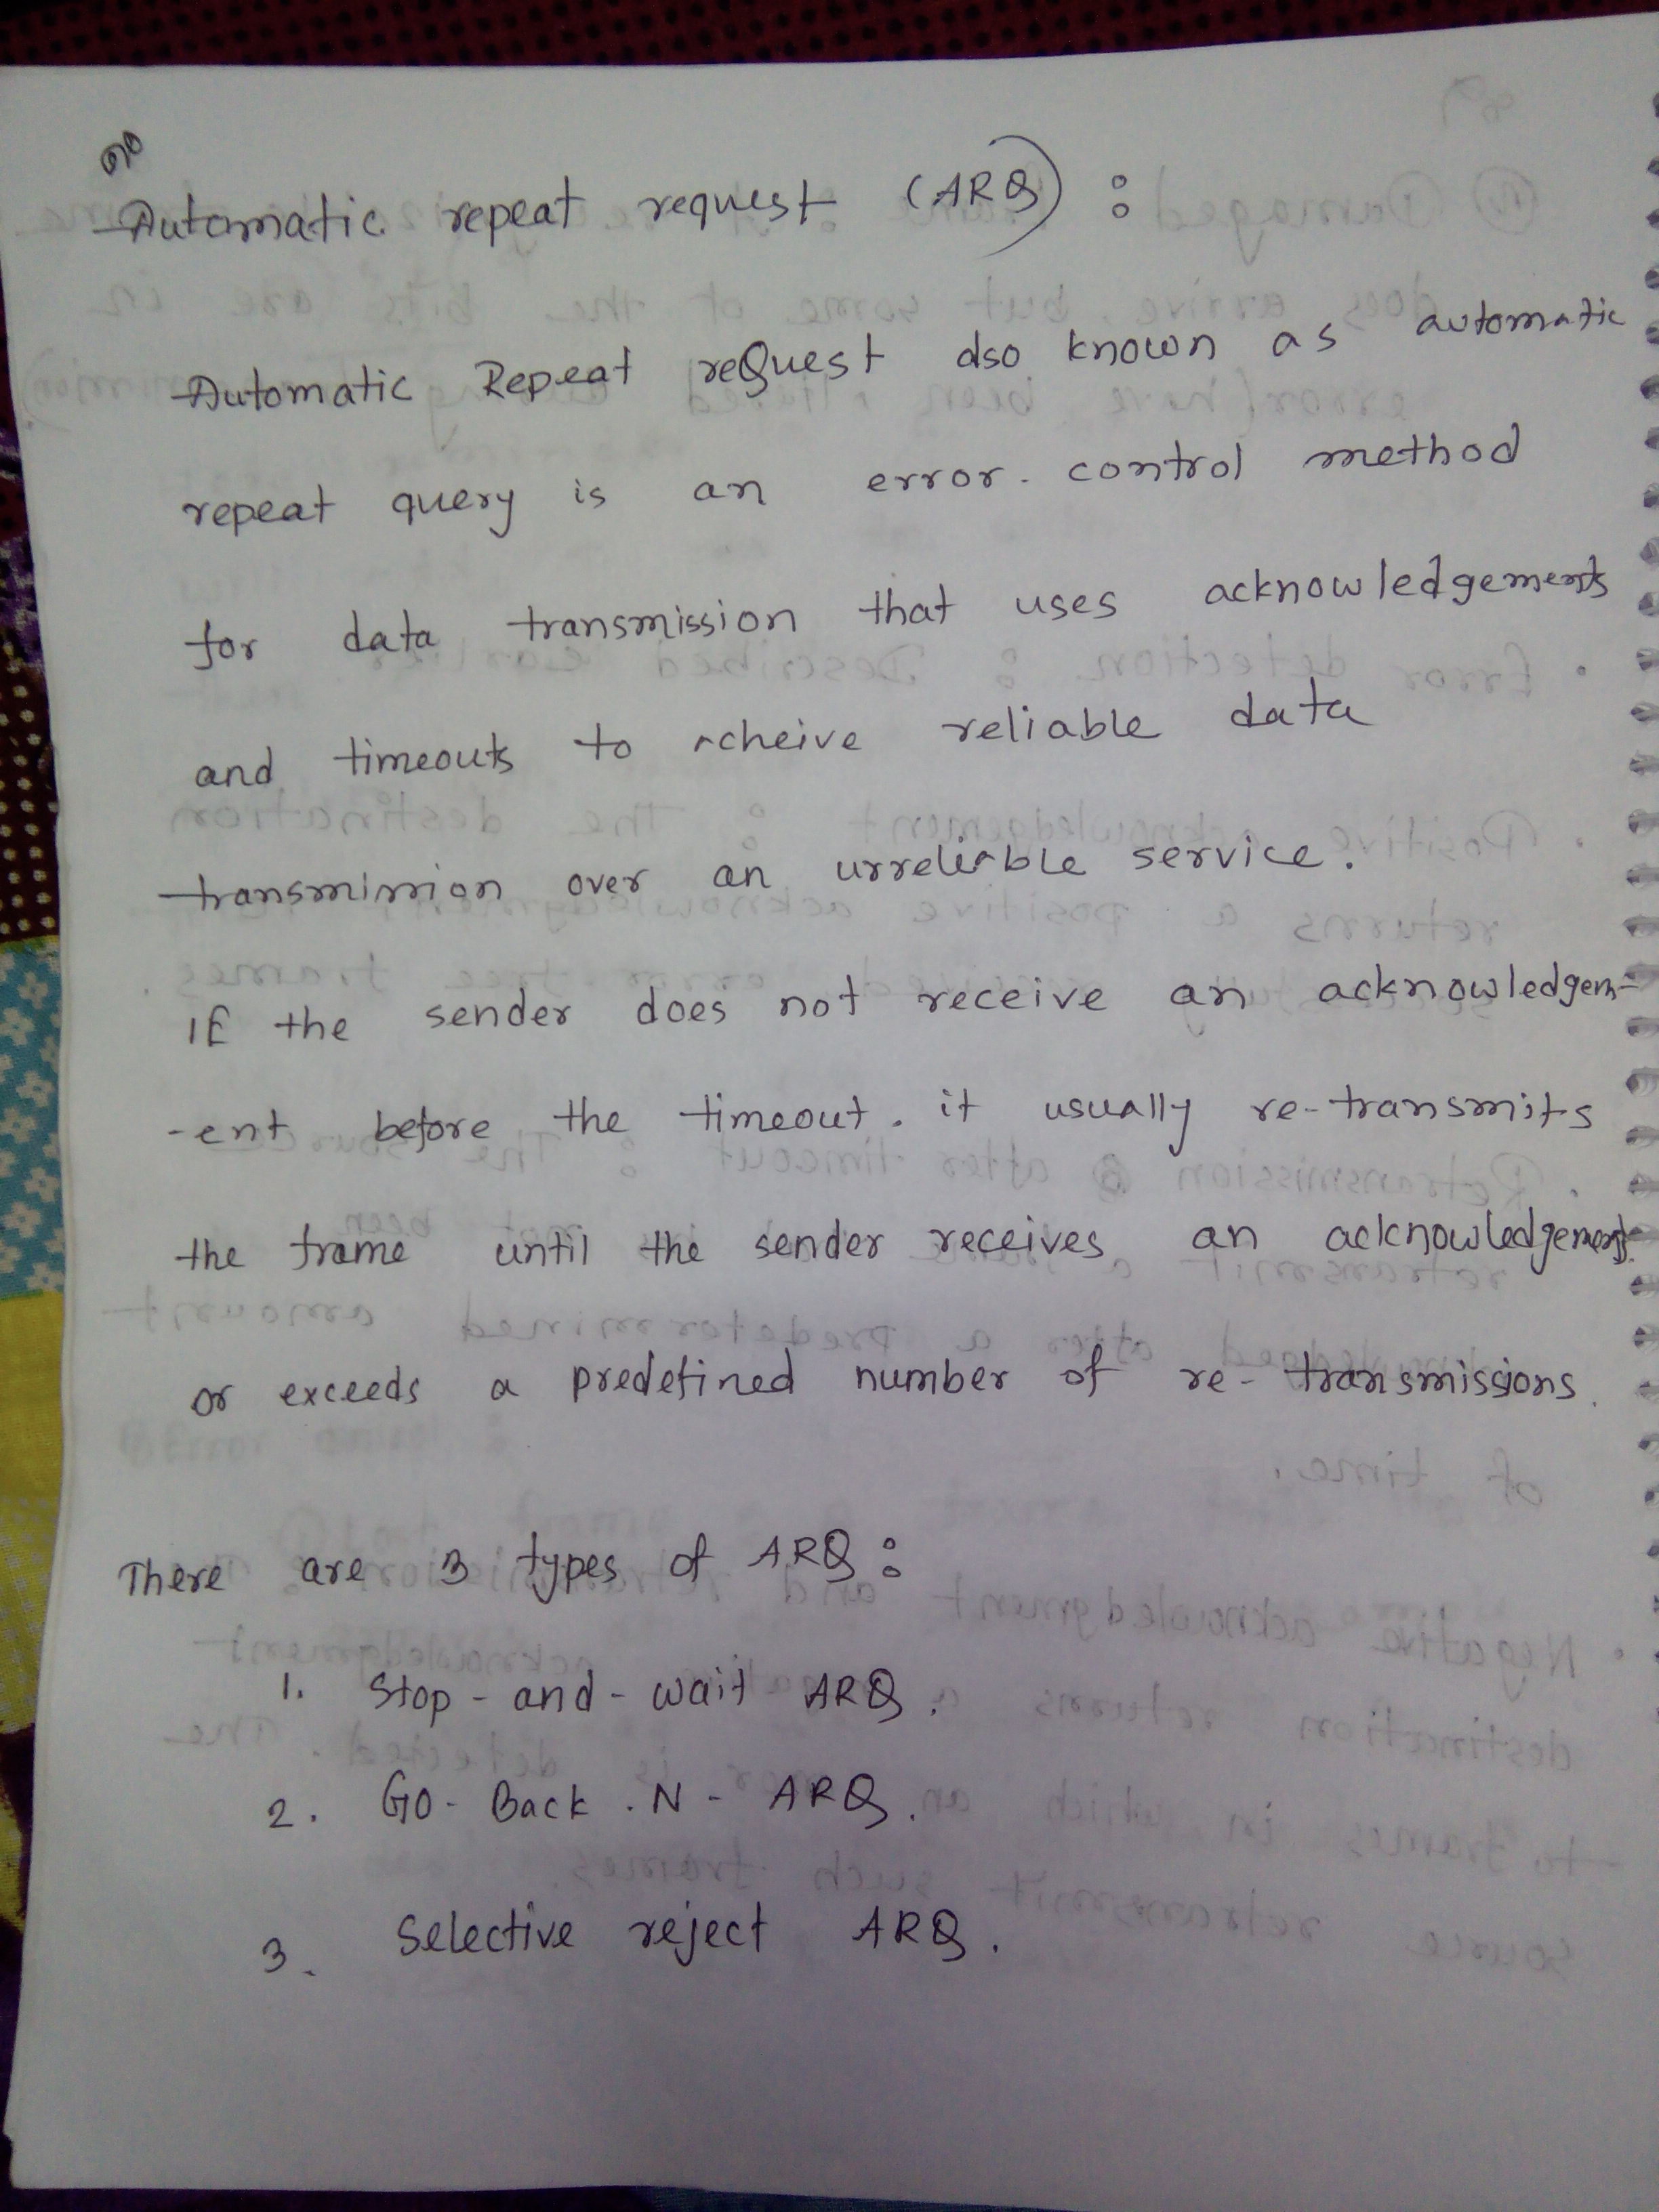 Automatic repeat request (ARQ) :
Automatic Repeat reQuest also known as automatic
repeat query is an error-control method
for data transmission that uses acknowledgements
and timeouts to acheive reliable data
transmission over an urreliable service.
If the sender does not receive an acknowledgem-
-ent before the timeout. it usually re-transmits
the frame until the sender receives an acknowledgement
or exceeds a predefined number of re-transmissions.
There are 3 types of ARQ :
1. Stop-and-wait ARQ.
2. Go-Back.N- ARQ.
3. Selective reject ARQ.